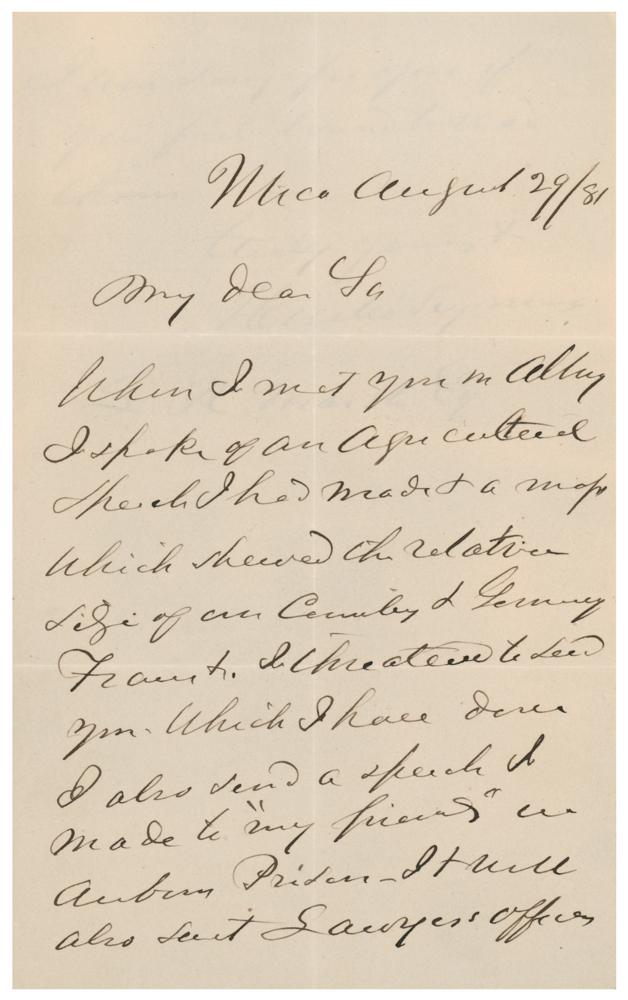 Utica August 29/81
My dear Sir
When I met you in Albany
I spoke of an Agricultural
speech I had made & a map
which shewed the relative
size of our Country & Germany
France &c. I threatened to send
you. Which I have done
I also send a speech I
made to "my friends" in
Auburn Prison - It will
also suit Lawyers offices